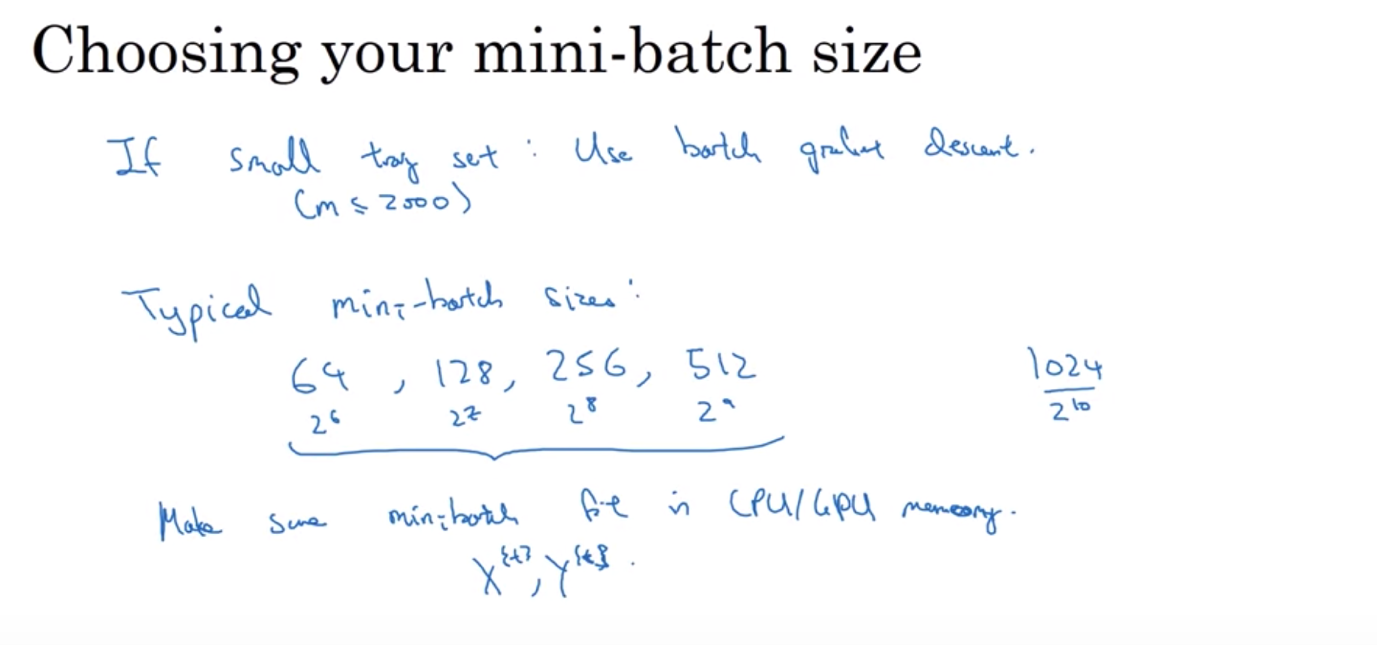 Choosing your mini-batch size
If small tray set : Use batch gradient descent.
(m ≤ 2000)
Typical mini-batch sizes:
64 , 128, 256, 512 1024
2^6 2^7 2^8 2^9 2^10
Make sure mini-batch fit in CPU/GPU memory.
X^{t}, Y^{t}.